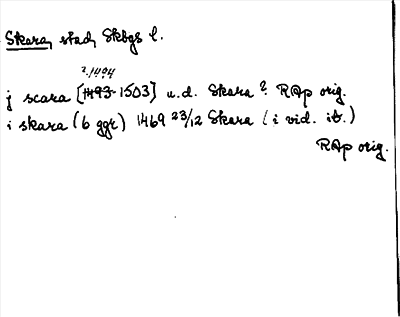 Skara, stad, Skbgs l.
? 1494
j scara [1493-1503] u.d. Skara? RAp orig.
i skara (6 ggr) 1469 23/12 Skara (i vid. it.)
RAp orig.